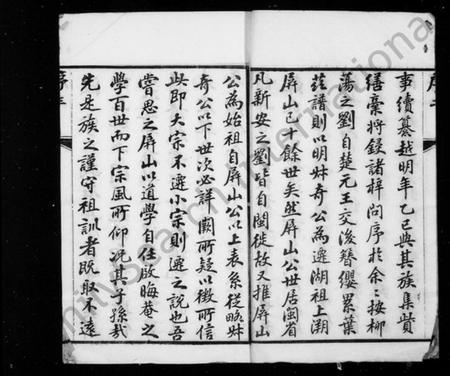 事續纂越明年乙巳與其族集貲
繕藁將録諸梓問序於余余按柳
蕩之劉自楚元王交後簪纓累葉
茲譜則以明妣奇公為遷湖祖上溯
屏山已十餘世矣然屏山公世居閩省
凡新安之劉皆自閩徙故又推屏山
公為始祖自屏山公以上表系從略妣
奇公以下世次必詳闕所疑以徵所信
此即大宗不遷小宗則遷之說也吾
嘗思之屏山以道學自任啟晦菴之
學百世而下宗風所仰况其子孫哉
先是族之謹守祖訓者既取不遠